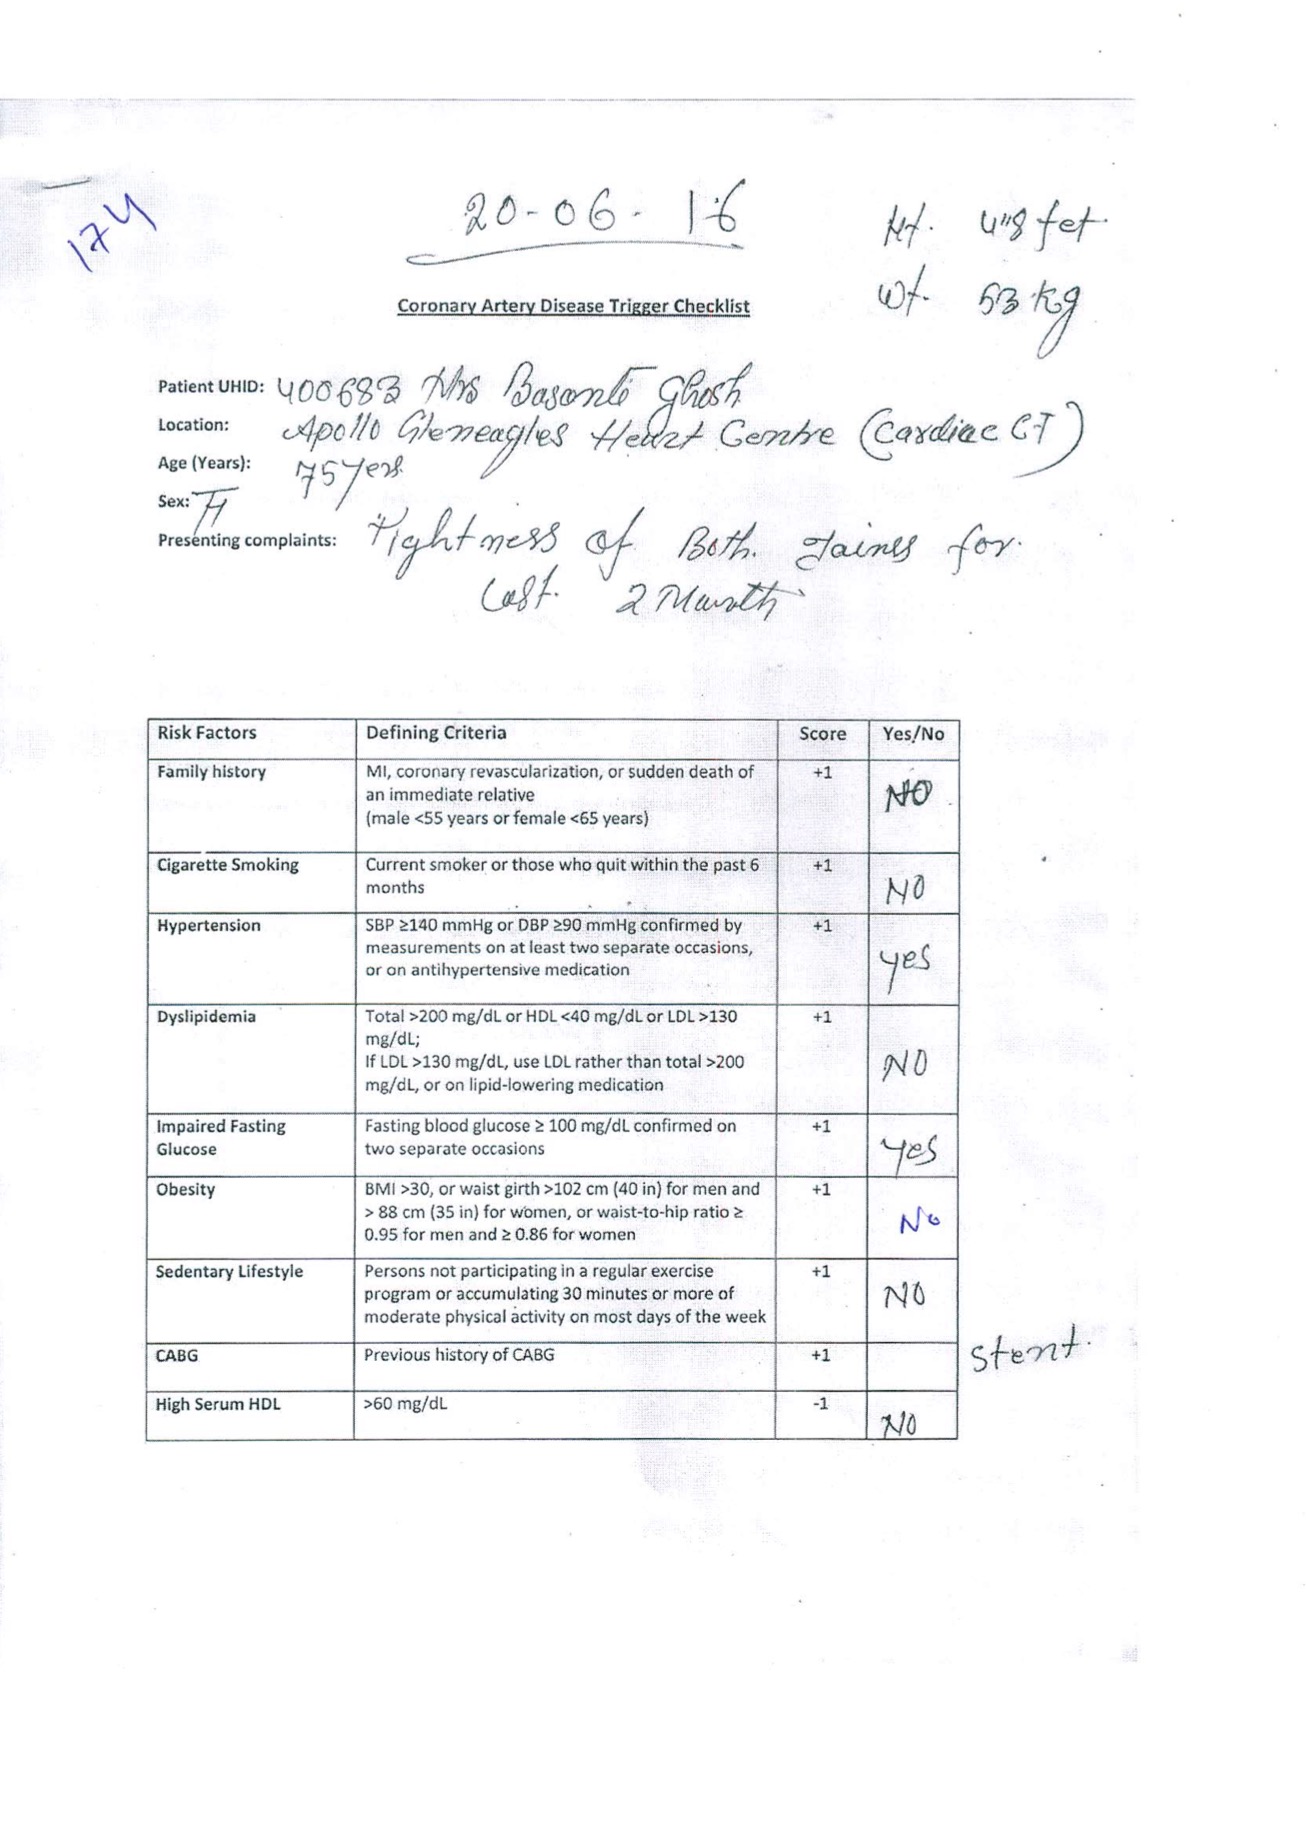 174
20-06-16
Ht. 4"8 fet
Wt. 53 kg
Coronary Artery Disease Trigger Checklist
Patient UHID: 400683 Mrs Basanti Ghosh
Location: Apollo Gleneagles Heart Centre (Cardiac CT)
Age (Years): 75 yers
Sex: F
Presenting complaints: Tightness of Both. for
Last. 2 Month
Risk Factors Defining Criteria Score Yes/No
Family history MI, coronary revascularization, or sudden death of +1 NO
an immediate relative
(male <55 years or female <65 years)
Cigarette Smoking Current smoker or those who quit within the past 6 +1 NO
months
Hypertension SBP ≥140 mmHg or DBP ≥90 mmHg confirmed by +1 yes
measurements on at least two separate occasions,
or on antihypertensive medication
Dyslipidemia Total >200 mg/dL or HDL <40 mg/dL or LDL >130 +1 NO
mg/dL;
If LDL >130 mg/dL, use LDL rather than total >200
mg/dL, or on lipid-lowering medication
Impaired Fasting Fasting blood glucose ≥ 100 mg/dL confirmed on +1 yes
Glucose two separate occasions
Obesity BMI >30, or waist girth >102 cm (40 in) for men and +1 No
> 88 cm (35 in) for women, or waist-to-hip ratio ≥
0.95 for men and ≥ 0.86 for women
Sedentary Lifestyle Persons not participating in a regular exercise +1 NO
program or accumulating 30 minutes or more of
moderate physical activity on most days of the week
CABG Previous history of CABG +1 Stent.
High Serum HDL >60 mg/dL -1 NO